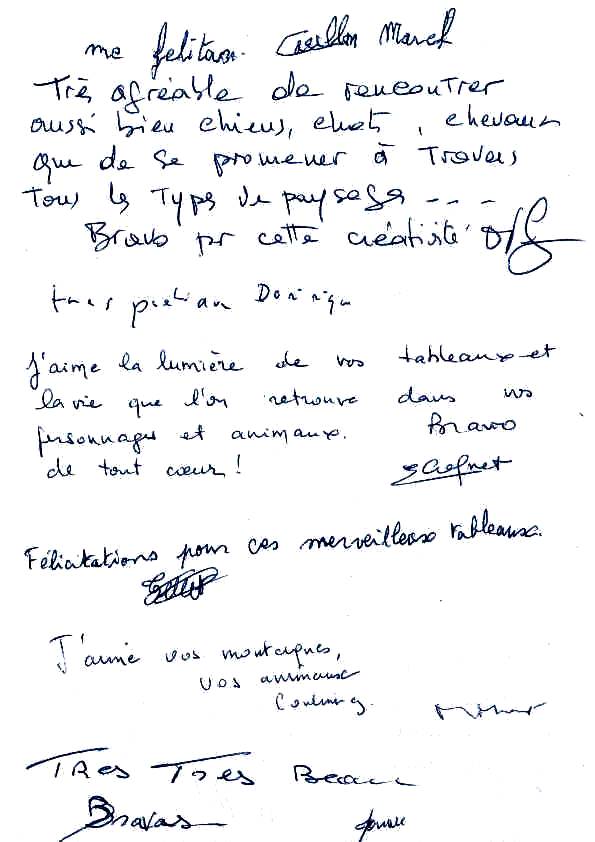 me felitan. Marcel
Très agréable de rencontrer
aussi bien chiens, chats, chevaux
que de se promener à Travers
Tous les Types de paysages - - -
Bravo pr cette créativité
J'aime la lumière de vos tableaux et
la vie que l'on retrouve dans vos
personnages et animaux. Bravo
de tout cœur !
Félicitations pour ces merveilleux tableaux.
J'aime vos montagnes,
vos animaux
Continuez.
TRES TRES Beaux
Bravos